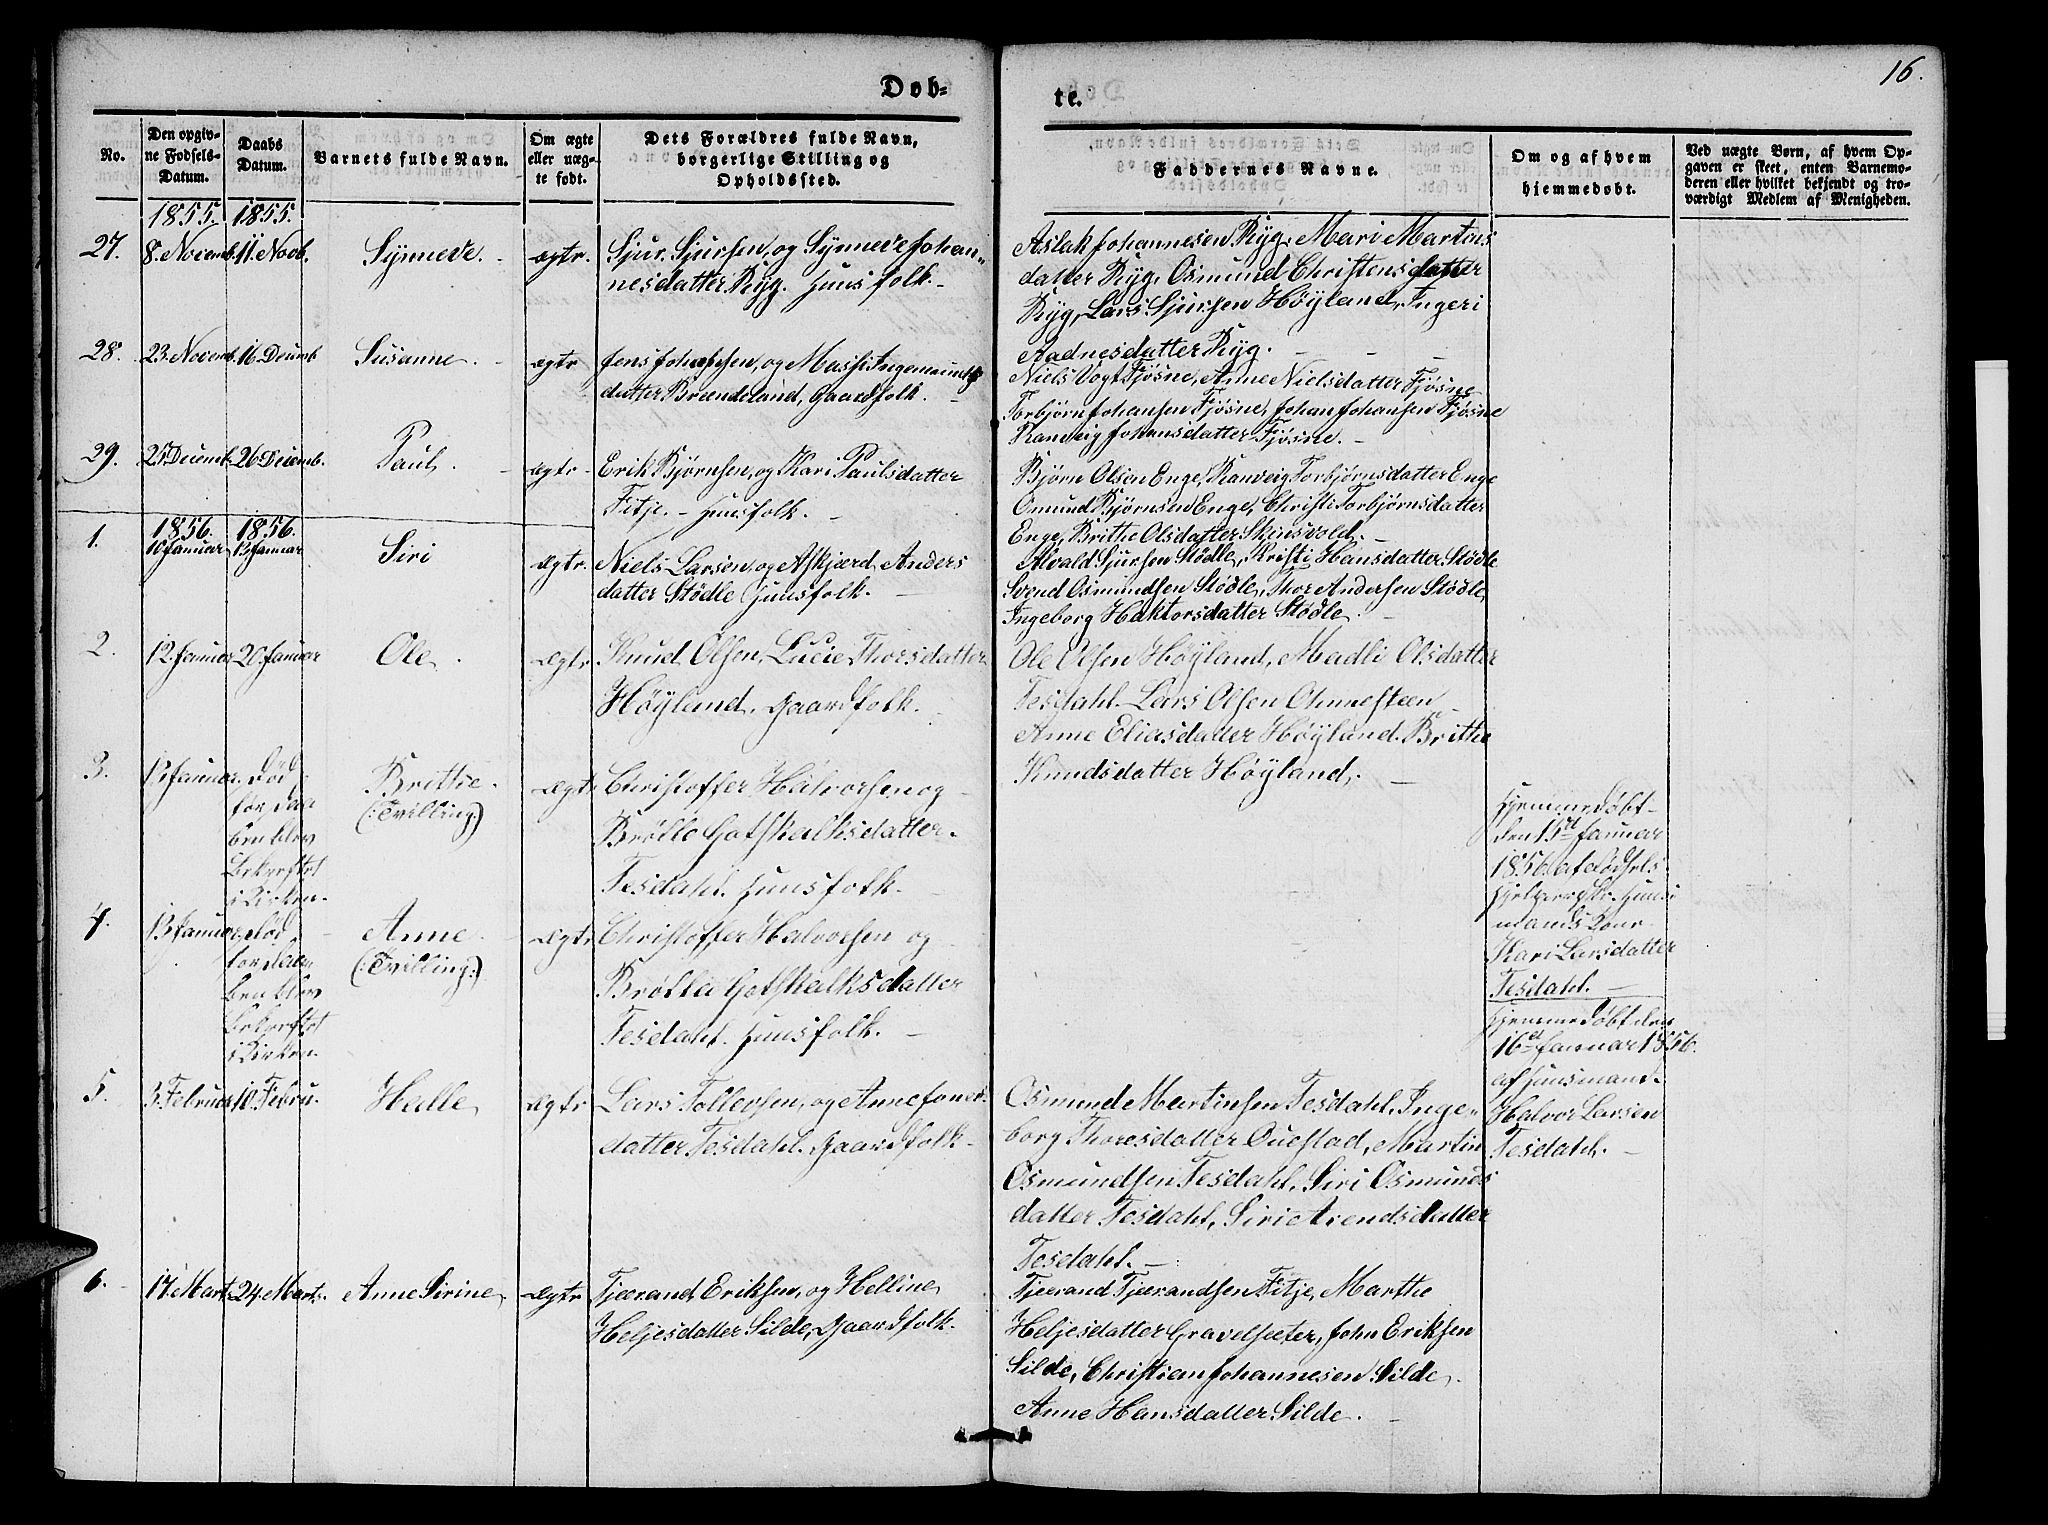 16.
Døb-
te.
No.
Den opgiv-
ne Fødsels-
Datum.
Daabs
Datum.
Barnets fulde Navn.
Om ægte
eller uæg-
te født.
Dets Forældres fulde Navn,
borgerlige Stilling og
Opholdssted.
Faddernes Navne.
Om og af hvem
hjemmedøbt.
Ved uægte Børn, af hvem Op-
gaven er skeet, enten Barnemo-
deren eller hvilket bekjendt og tro-
værdigt Medlem af Menigheden.
1855. 1855.
27.
8. Novemb.
11. Novb.
Synneve.
ægtr.
Sjur Sjursen, og Synneve Johan-
nesdatter Ryg. Huusfolk.
Aslak Johannesen Ryg, Mari Martens
datter Ryg, Osmund Christensdatter
Ryg, Lars Sjursen Høyland, Ingeri
Aadnesdatter Ryg.
28.
23. Novemb.
16. Decemb
Susanne.
ægtr
Jens Johansen, og Massi Ingemunds
datter Brændeland, Gaardfolk.
Niels Vogt Fjøsne, Anne Nielsdatter Fjøsne
Torbjørn Johansen Fjøsne, Johan Johansen Fjøsne
Ranveig Johansdatter Fjøsne.
29.
25 Decemb.
26 Decemb.
Paul.
ægtr.
Erik Bjørnsen, og Kari Paulsdatter
Fitje. - Huusfolk.
Bjørn Olsen Enge, Ranveig Torbjørnsdatter Enge
Omund Bjørnsen Enge, Christi Torbjørnsdatter
Enge, Brithe Olsdatter Skinsvold.
1856. 1856.
1.
10 Januar
13 Januar
Siri
ægtr.
Niels Larsen, og Askjærd Anders
datter Stødle Huusfolk.
Alvald Sjursen Stødle, Kristi Hansdatter Stødle
Svend Osmundsen Stødle, Thor Andersen Stødle,
Ingeborg Haktorsdatter Stødle.
2.
12. Januar
20 Januar
Ole.
ægtr
Knud Olsen, Lucie Thorsdatter
Høyland. Gaardfolk.
Ole Olsen Høyland, Madli Olsdatter
Tesdahl. Lars Olsen Ohmesteen
Anne Eliasdatter Høyland. Brithe
Knudsdatter Høyland.
3.
13 Januar.
Død
før Daa
ben blev
Bekræftet
i Kirken.
Brithe.
(: Tvilling:)
ægtr
Christoffer Halvorsen og
Brølle Gotskalksdatter.
Tesdahl. Huusfolk.
Hjemmedøbt
den 15d Januar
1856 af Fødsels
Huus
mands Kone
Kari Larsdatter
Tesdahl.
4.
13 Januar,
Død
før Daa
ben blev
Bekræftet
i Kirken.
Anne
(: Tvilling:)
ægtr
Christoffer Halvorsen og
Brølle Gotskalksdatter
Tesdahl. Huusfolk.
Hjemmedøbt den
16d Januar 1856.
af Huusmand
Halvor Larsen
Tesdahl.
5.
3. Februar
10. Febru.
Halle
ægtr
Lars Tollevsen, og Anne Jones
datter Tesdahl. Gaardfolk
Osmund Martinsen Tesdahl, Inge-
borg Thoresdatter Ouestad, Martin
Osmundsen Tesdahl, Siri Osmunds
datter Tesdahl, Siri Arendsdatter
Tesdahl.
6.
17. Mart.
24. Mart.
Anne Sirine
ægtr
Tjærand Eriksen, og Helline
Heljesdatter Silde, Gaardfolk.
Tjærand Tjærandsen Fitje, Marthe
Heljesdatter Gravelsæter, John Eriksen
Silde, Christian Johannesen Silde
Anne Hansdatter Silde.